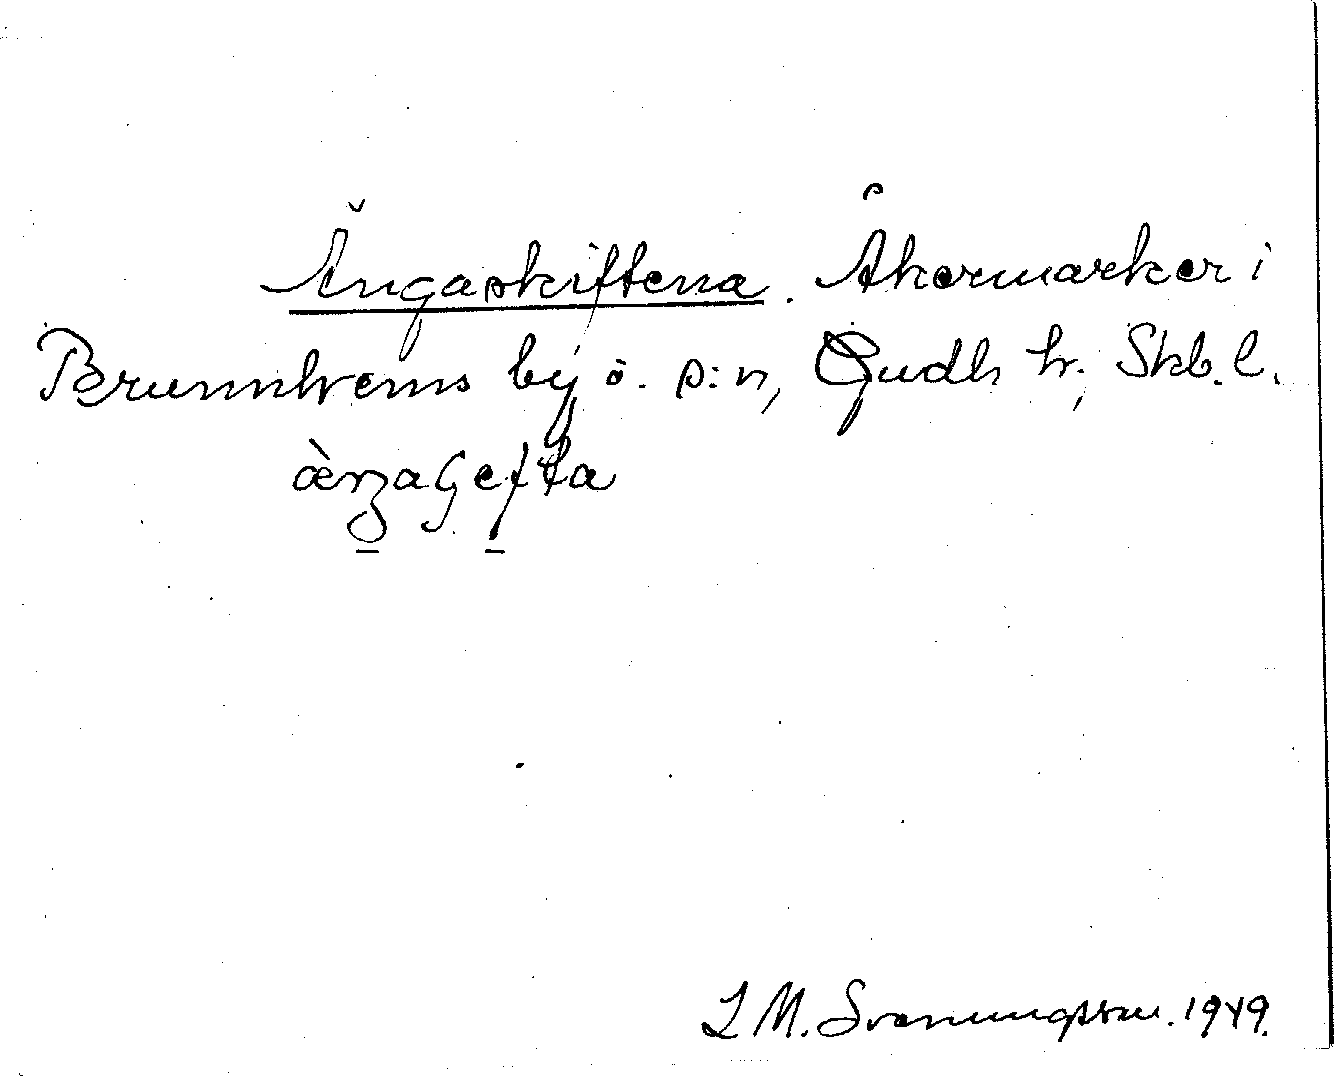 Ängaskiftena. Åkermarker i
Brunnhems by o. s:n, Gudh. hr, Skb. l.
L M. Svenungsson. 1949.